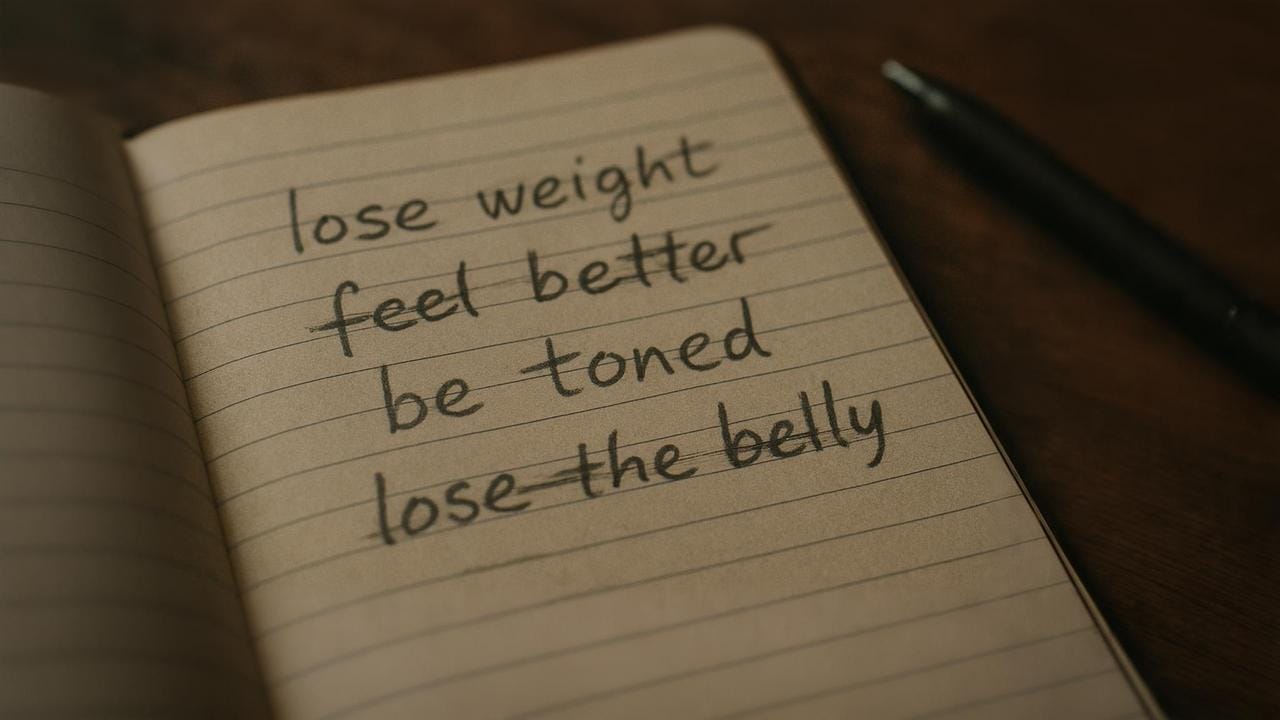 lose weight
feel better
be toned
lose the belly